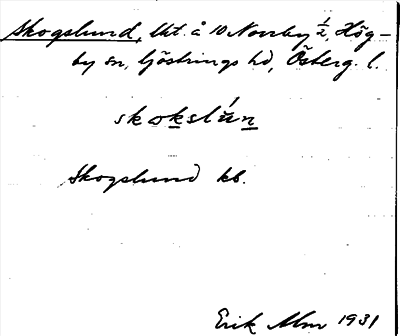 Skogslund, lht. å 10 Norrby 1/2, Hög-
by sn, Göstrings hd, Österg. l.
skokslún
Skogslund kb.
Erik Alm 1931